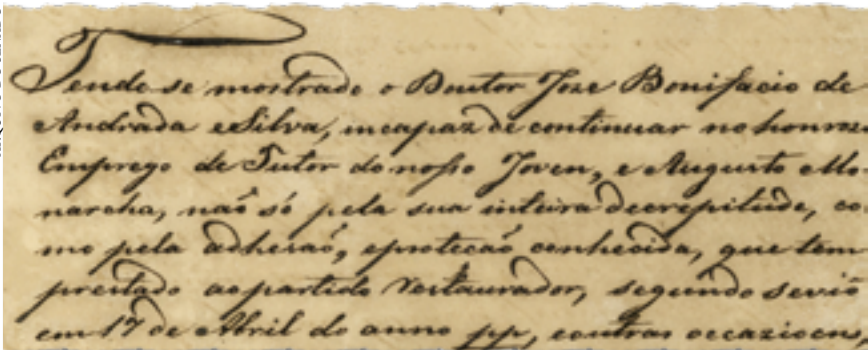 Tendo se mostrado o Doutor Joze Bonifacio de
Andrada e Silva, incapaz de continuar no honrozo
Emprego de Tutor do nosso Joven, e Augusto Mo-
narcha, naõ só pela sua inteira decrepitude, co-
mo pela adhesaõ, e proteçaõ conhecida, que tem
prestado ao partido restaurador, segundo se vio
em 17 de Abril do anno pp, e outras occazioens,